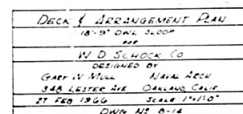 DECK & ARRANGEMENT PLAN
18'-9" DWL SLOOP
FOR
W D SCHOCK CO
DESIGNED BY
GARY W MULL NAVAL ARCH
348 LESTER AVE OAKLAND CALIF
27 FEB 1966 SCALE 1"=1'-0"
DWG Nº 8-14